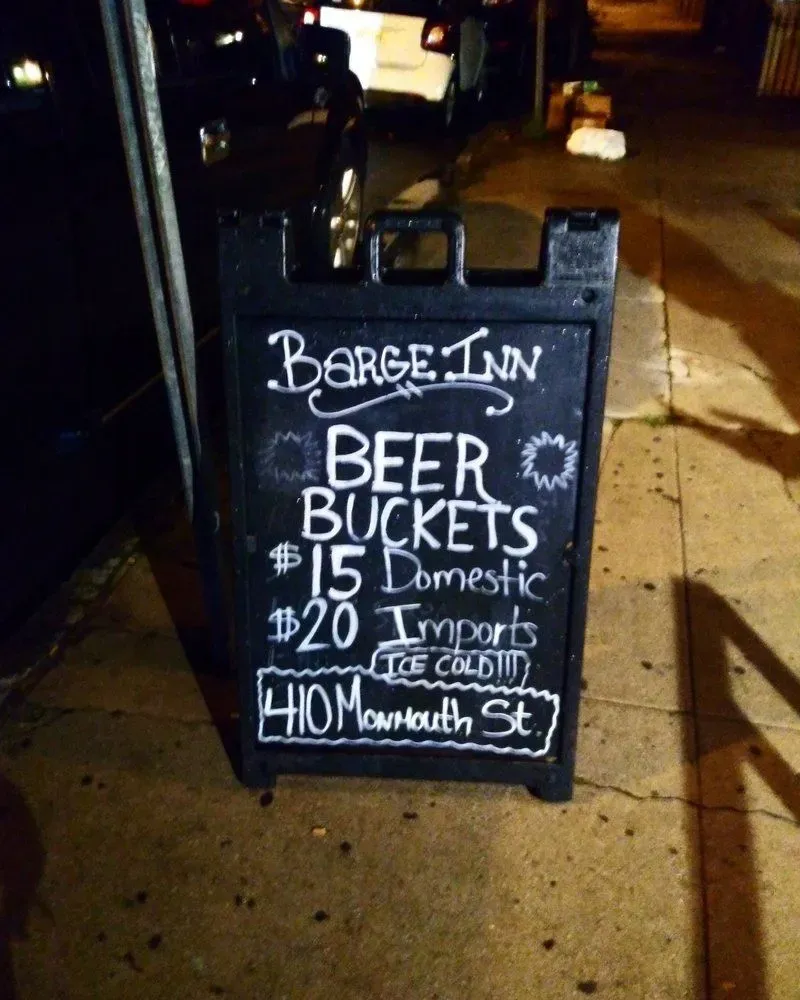 BARGE INN
BEER
BUCKETS
$15 Domestic
$20 Imports
ICE COLD!!!
410 MONMOUTH St.